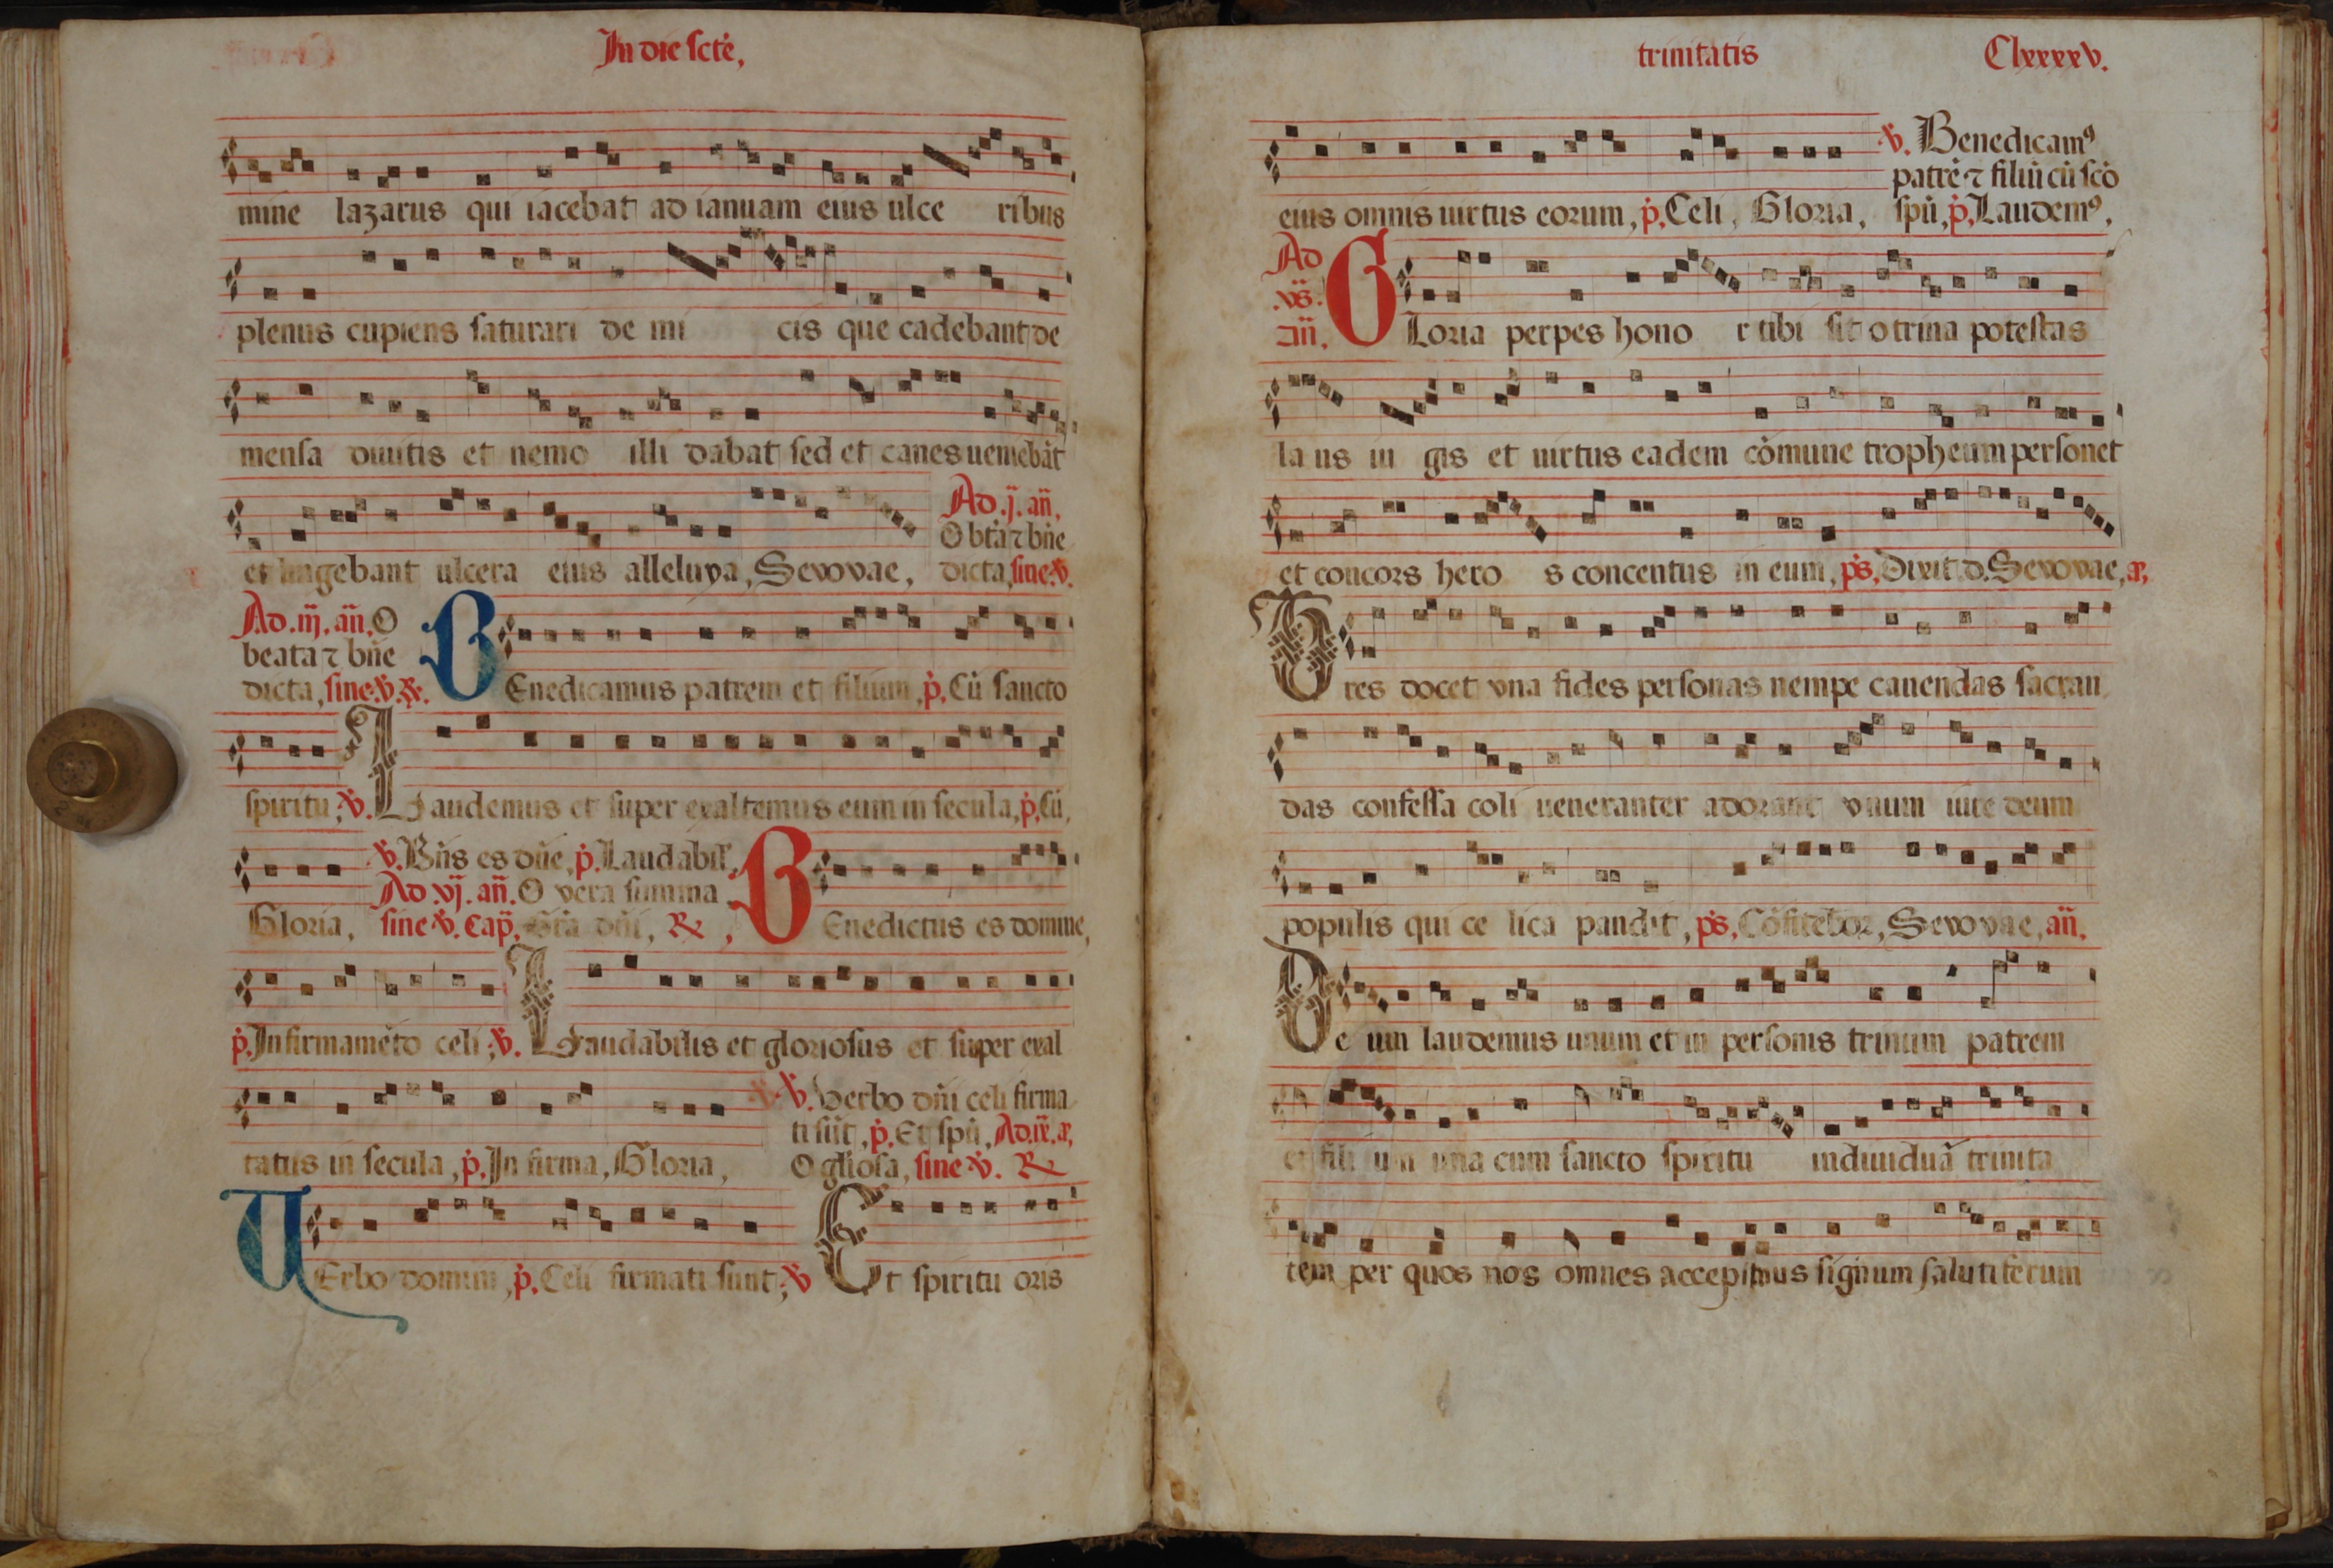 In die scte,
mine lazarus qui iacebat ad ianuam eius ulce ribus
plenus cupiens saturari de mi cis que cadebant de
mensa diuitis et nemo illi dabat sed et canes ueniebāt
et lingebant ulcera eius alleluya, Seuouae,
Ad .j. añ,
O btā ⁊ bñe
dicta, sine ℣.
Ad .iij. añ. O
beata ⁊ bñe
dicta, sine ℣. ℟.
BEnedicamus patrem et filium, p̄. Cū sancto
spiritu, ℣. Laudemus et super exaltemus eum in secula, p̄. Cū,
Gloria,
℣. Bñs es dñe, p̄. Laudabil,
Ad .vj. añ. O vera summa
sine ℣. Cap̄.
℟,
BEnedictus es domine,
p̄. In firmamēto celi, ℣. Laudabilis et gloriosus et super exal
tatus in secula, p̄. In firma, Gloria,
℣. Verbo dñi celi firma
ti sūt, p̄. Et spū, Ad .ix. a,
O gliosa, sine ℣. ℟
UErbo domini, p̄. Celi firmati sunt, ℣ Et spiritu oris
trinitatis Clxxxxv.
eius omnis uirtus eorum, p̄. Celi, Gloria,
℣. Benedicamꝰ
patrē ⁊ filiū cū scō
spū, p̄. Laudemꝰ,
Ad
.vs̄.
añ.
GLoria perpes hono r tibi sit o trina potestas
la us iu gis et uirtus eadem cōmune tropheum personet
et concors hero s concentus in eum, ps̄, Dixit d. Seuouae, a,
Tres docet vna fides personas nempe cauendas sacran
das confessa coli ueneranter adorant vnum iure deum
populis qui ce lica pandit, ps̄, Cōfitebor, Seuouae, añ.
De um laudemus unum et in personis trinum patrem
et fili um una cum sancto spiritu indiuiduā trinita
tem per quos nos omnes accepimus signum salutiferum